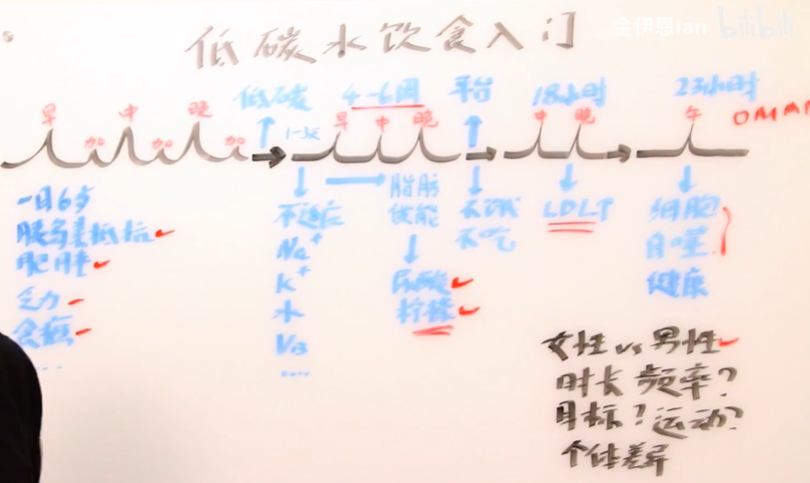 金伊恩Ian bilibili
低碳水饮食入门
低碳 4-6周 平台 18小时 23小时
早 加 中 加 晚 加 早 中 晚 中 晚 午 OMAD
一日6歺
胰岛素抵抗
肥胖
乏力
食瘾
....
不适应
Na+
K+
水
VB
....
脂肪
供能
尿酸
柠檬
不饿
不吃
LDL↑
细胞
自噬
健康
女性 vs 男性
时长 频率？
目标？运动？
个体差异